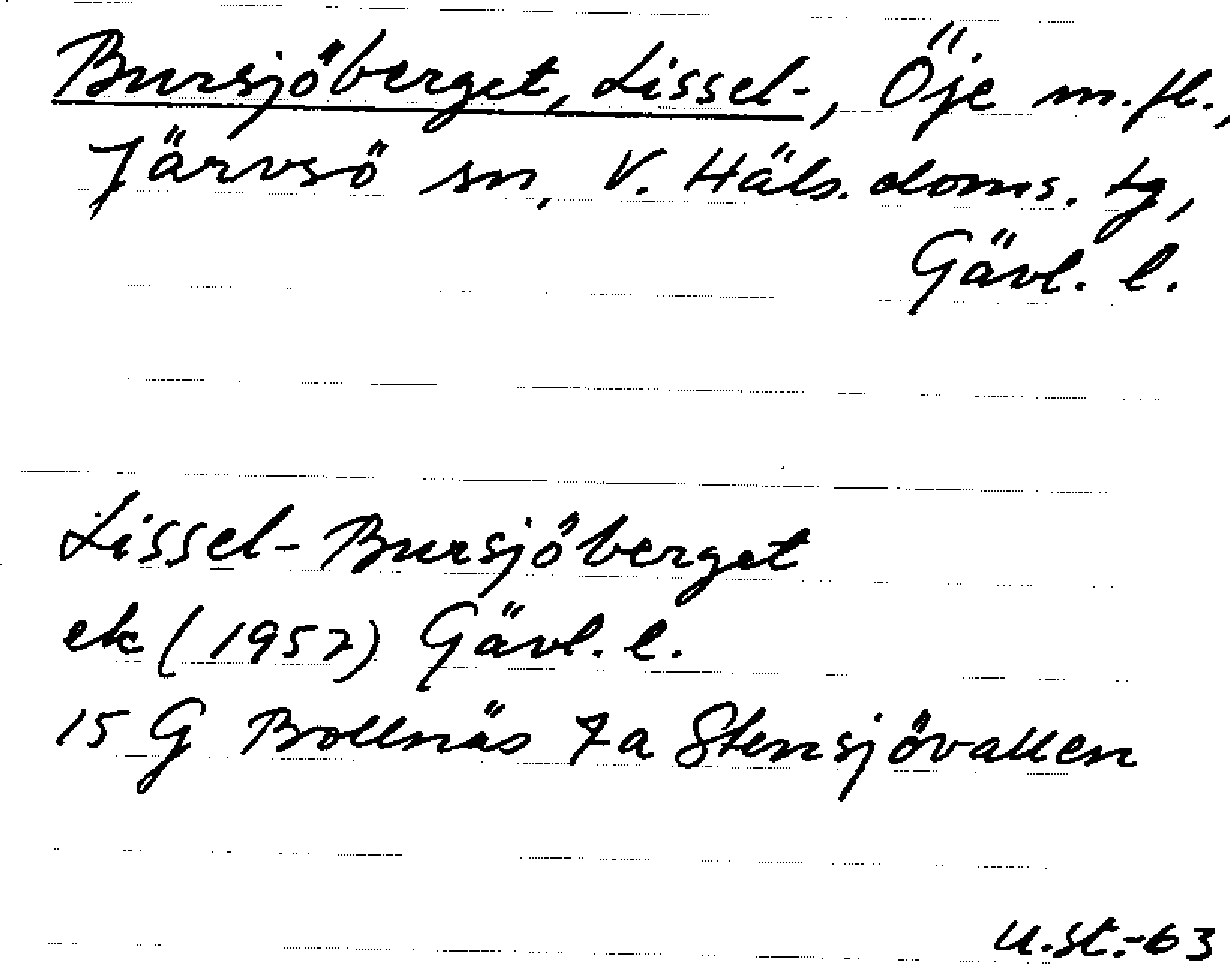 Bursjöberget, Lissel-, Öje m.fl.,
Järvsö sn, V. Häls. doms. tg,
Gävl. l.
Lissel-Bursjöberget
ek (1952) Gävl. l.
15 G Bollnäs 7a Stensjövallen
U.St.-63